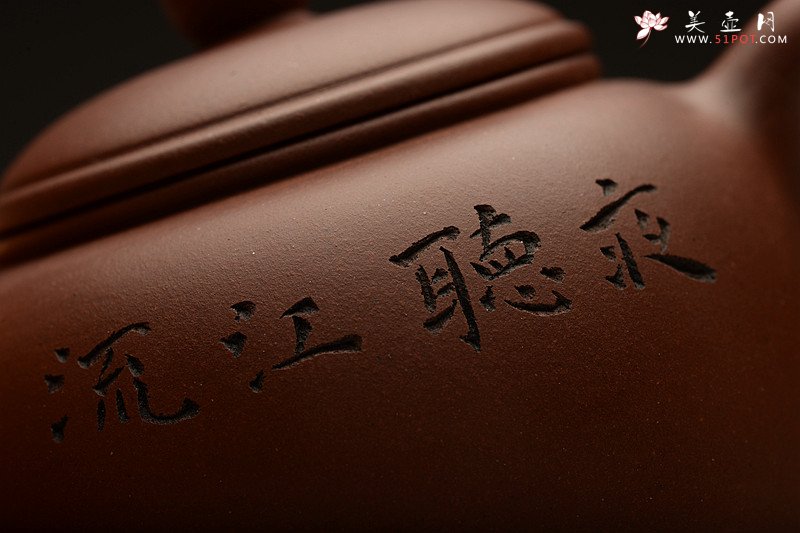 美壶网
WWW.51POT.COM
夜聽江流